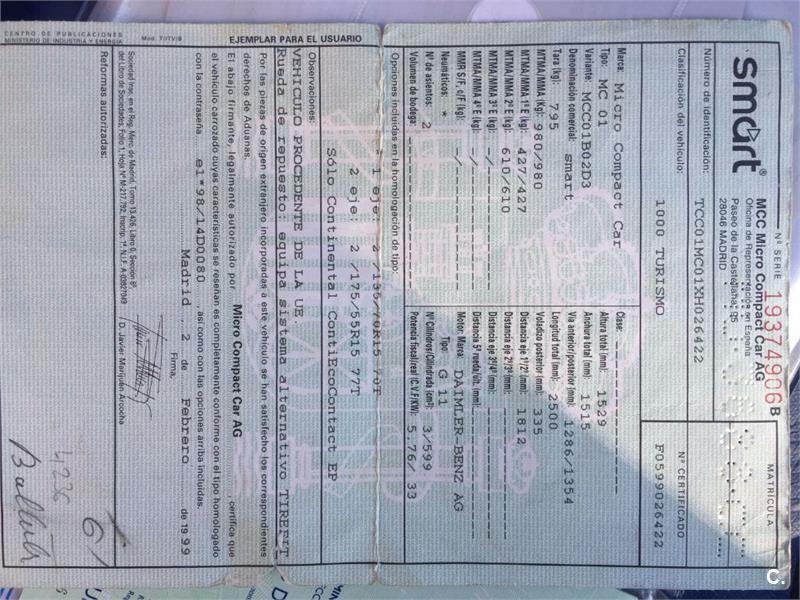 smart®
MCC Micro Compact Car AG
Oficina de Representación en España
Paseo de la Castellana, 95
28046 MADRID
Nº SERIE 19374906 B
MATRICULA
Número de identificación: TCC01MC01XH026422
Nº CERTIFICADO
F0599026422
Clasificación del vehículo: 1000 TURISMO
Marca: Micro Compact Car
Tipo: MC 01
Variante: MCC01B02D3
Denominación comercial: smart
Tara (kg): 795
MTMA/MMA (Kg): 980/980
MTMA/MMA 1º E (kg): 427/427
MTMA/MMA 2º E (kg): 610/610
MTMA/MMA 3º E (kg): -/-
MTMA/MMA 4º E (kg): -/-
MMR S/F, c/F (kg): -/-
Neumáticos: *
Nº de asientos: 2
Volumen de bodega:
Clase:
Altura total (mm): 1529
Anchura total (mm): 1515
Vía anterior/posterior (mm): 1286/1354
Longitud total (mm): 2500
Voladizo posterior (mm): 335
Distancia eje 1º/2º (mm): 1812
Distancia eje 2º/3º (mm):
Distancia eje 3º/4º (mm):
Distancia 5ª rueda/últ. (mm):
Motor: Marca: DAIMLER-BENZ AG
Tipo: G 11
Nº Cilindros/Cilindrada (cm³): 3/599
Potencia fiscal/real (C.V.F/KW): 5.76/ 33
Opciones incluidas en la homologación de tipo:
* 1 eje: 2 /135/70R15 70T
2 eje: 2 /175/55R15 77T
Sólo Continental ContiEcoContact EP
Observaciones:
VEHICULO PROCEDENTE DE LA UE.
Rueda de repuesto: equipa sistema alternativo TIREFIT
Por las piezas de origen extranjero incorporadas a este vehículo se han satisfecho los correspondientes
derechos de Aduanas.
El abajo firmante, legalmente autorizado por Micro Compact Car AG, certifica que
el vehículo carrozado cuyas características se reseñan es completamente conforme con el tipo homologado
con la contraseña e1*98/14D0080, así como con las opciones arriba incluidas.
Madrid, 2 de Febrero de 1999
Firma,
D. Javier Marijuán Arcocha
Sociedad Insc. en el Reg. Merc. de Madrid, Tomo 13.426, Libro 0, Sección 8ª,
del Libro de Sociedades, Folio 1, Hoja Nº M-217.792, Inscrip. 1ª. N.I.F. A-0382704I9
Reformas autorizadas:
4236
61
CENTRO DE PUBLICACIONES
MINISTERIO DE INDUSTRIA Y ENERGIA
Mod. T/ITV/B
EJEMPLAR PARA EL USUARIO
C.